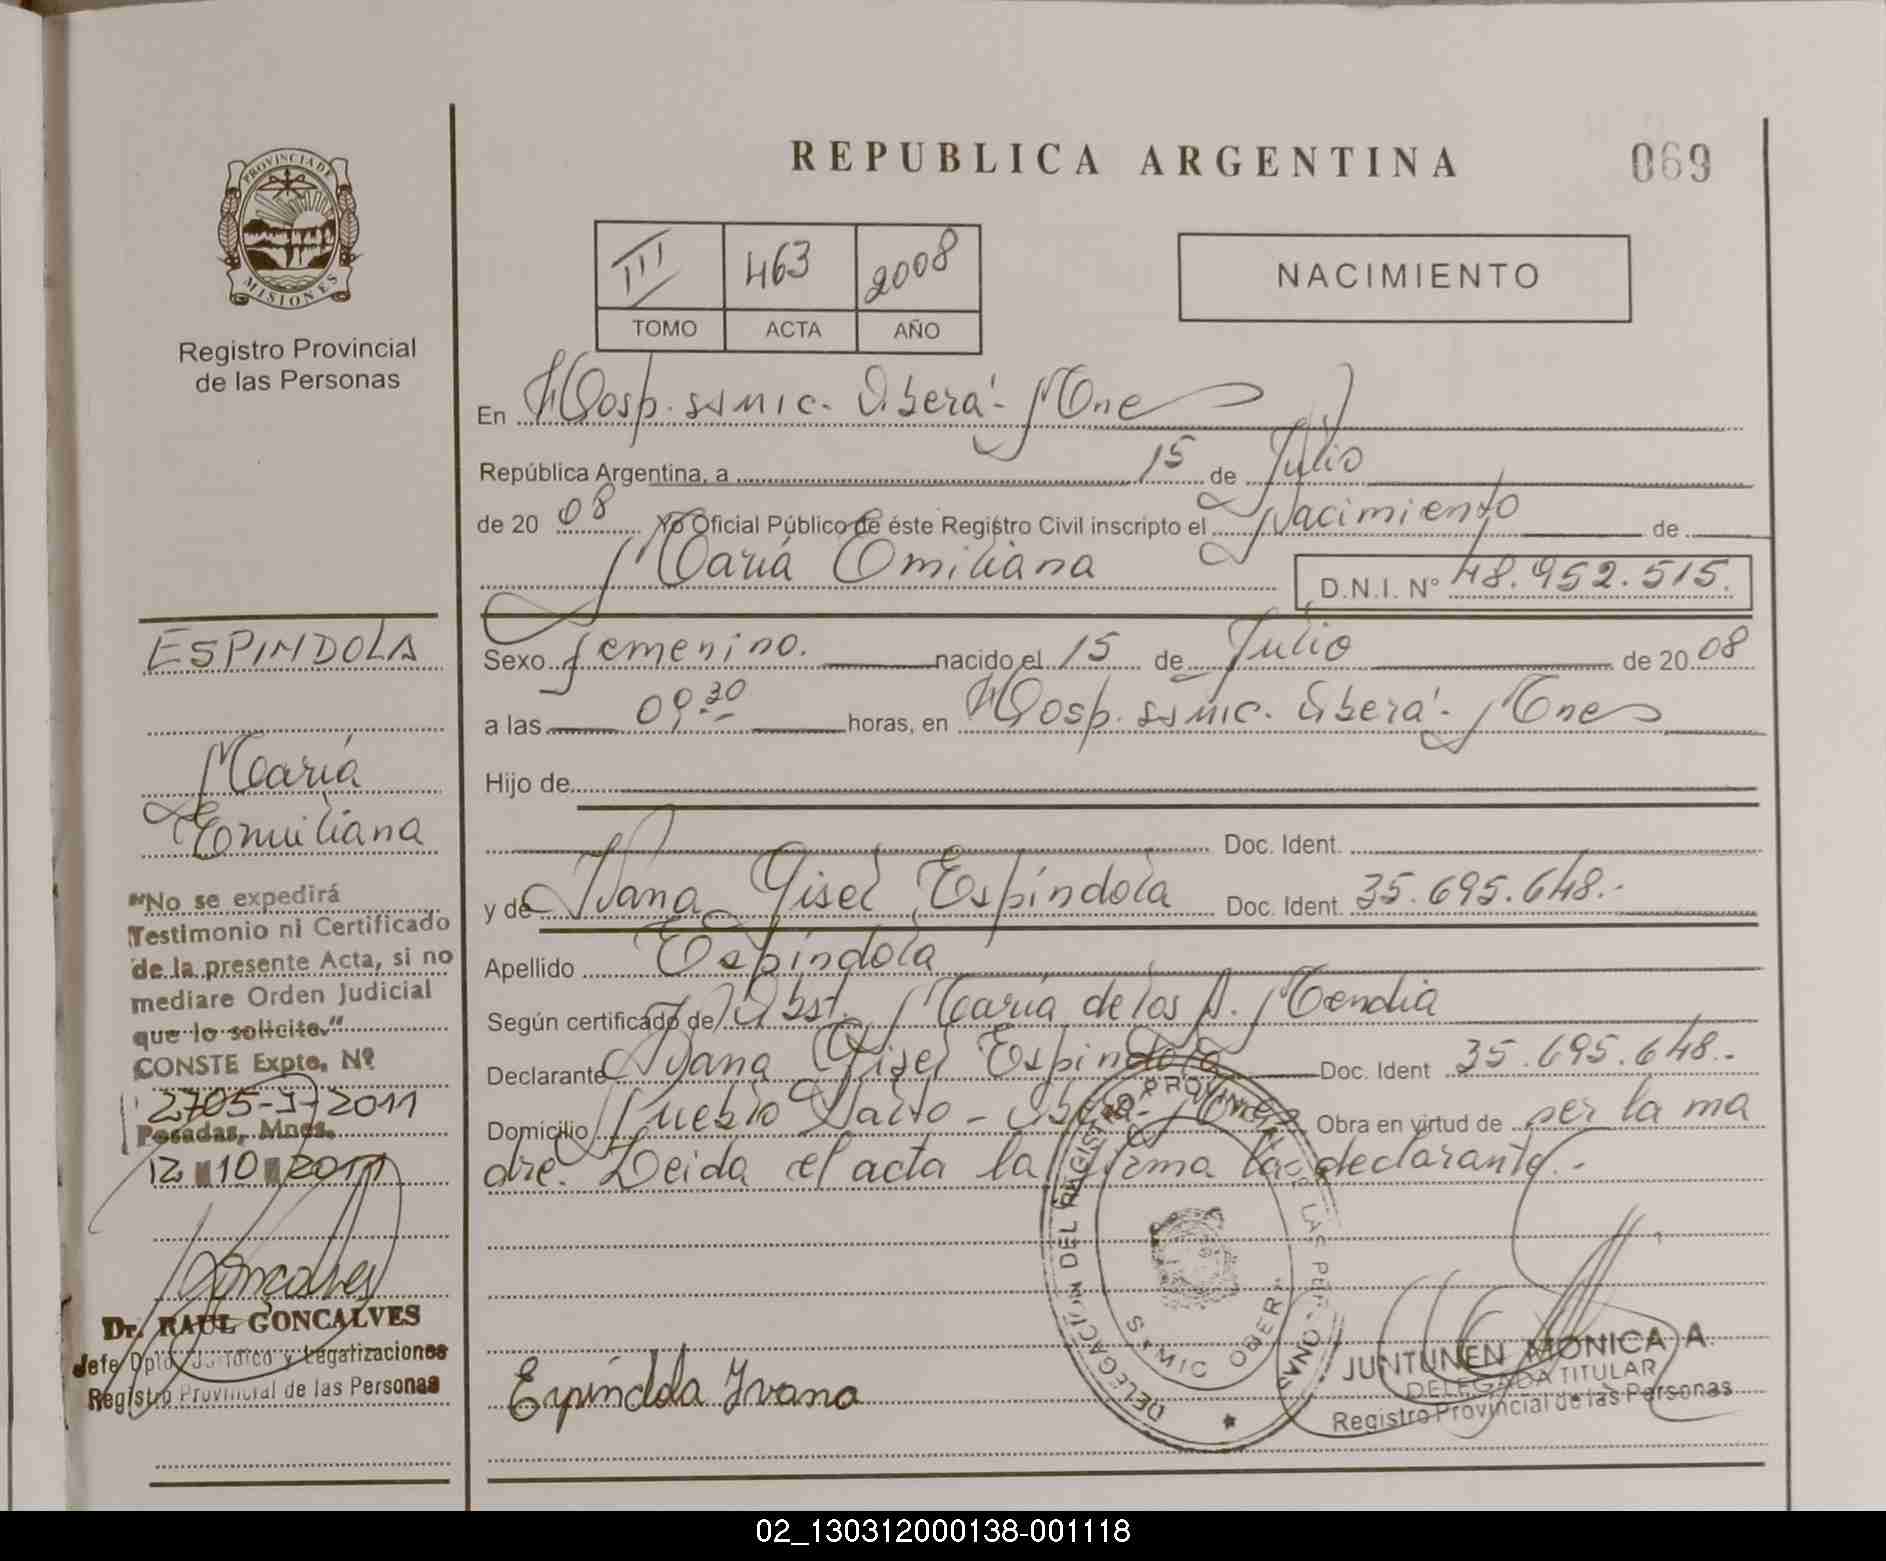 REPUBLICA ARGENTINA
069
PROVINCIA DE MISIONES
Registro Provincial
de las Personas
III 463 2008
TOMO ACTA AÑO
NACIMIENTO
En Hosp. SAMIC. Oberá - Mnes
República Argentina, a 15 de Julio
de 20 08 Yo Oficial Público de éste Registro Civil inscripto el Nacimiento de
María Emiliana D.N.I. Nº 48.952.515.
Sexo femenino. nacido el 15 de Julio de 20 08
a las 09.30 horas, en Hosp. SAMIC. Oberá - Mnes
Hijo de
Doc. Ident.
y de Ivana Gisel Espíndola Doc. Ident. 35.695.648.-
Apellido Espíndola
Según certificado de Obst. María de los A. Mendia
Declarante Ivana Gisel Espíndola Doc. Ident 35.695.648.-
Domicilio Pueblo Salto - Oberá - Mnes Obra en virtud de ser la ma
dre. Leida el acta la firma la declarante.-
ESPINDOLA
María
Emiliana
"No se expedirá
Testimonio ni Certificado
de la presente Acta, si no
mediare Orden Judicial
que lo solicite."
CONSTE Expte. Nº
2705-J-2011
Posadas, Mnes.
12 10 2011
Goncalves
Dr. RAUL GONCALVES
Jefe Dpto. Jurídico y Legalizaciones
Registro Provincial de las Personas
Espíndola Ivana
DELEGACIÓN DEL REGISTRO PROVINCIAL DE LAS PERSONAS
SAMIC OBERA
JUNTUNEN MONICA A.
DELEGADA TITULAR
Registro Provincial de las Personas
02_130312000138-001118